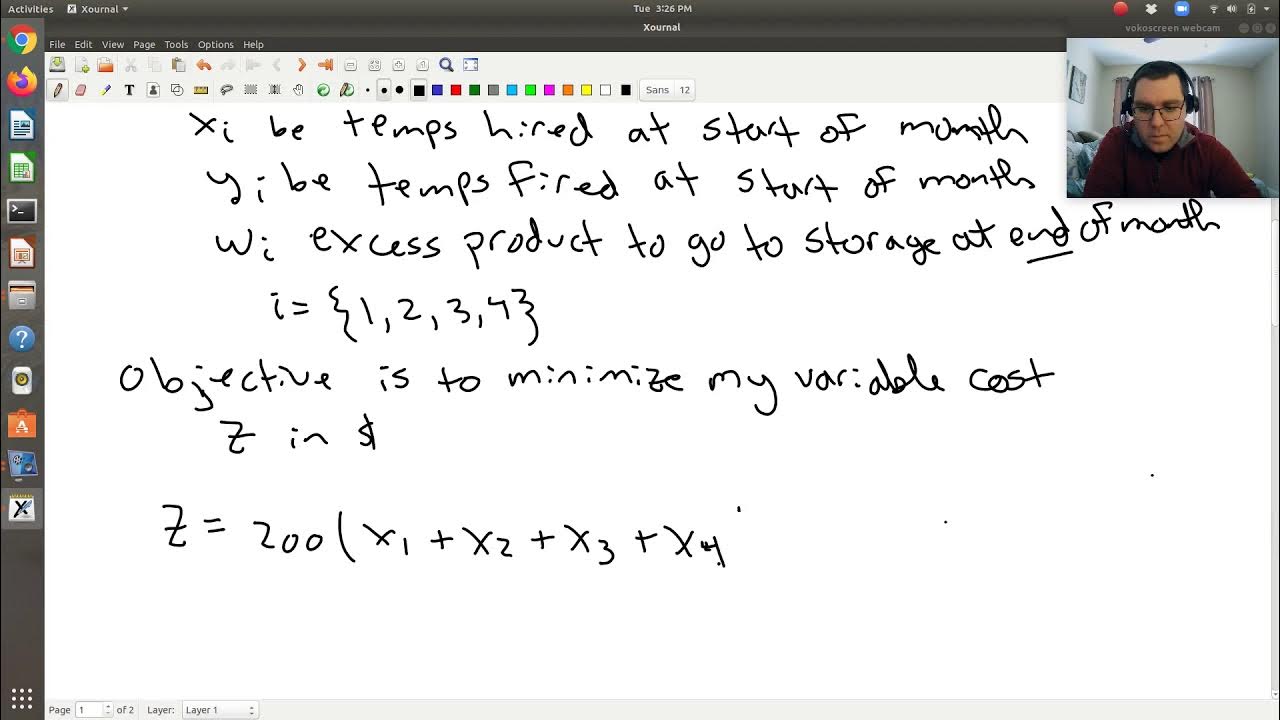 Activities Xournal Tue 3:26 PM
Xournal
vokoscreen webcam
File Edit View Page Tools Options Help
Sans 12
xi be temps hired at start of month
yi be temps fired at start of month
wi excess product to go to storage at end of month
i = {1, 2, 3, 4}
Objective is to minimize my variable cost
Z in $
Z = 200 (x1 + x2 + x3 + x4
Page 1 of 2 Layer: Layer 1